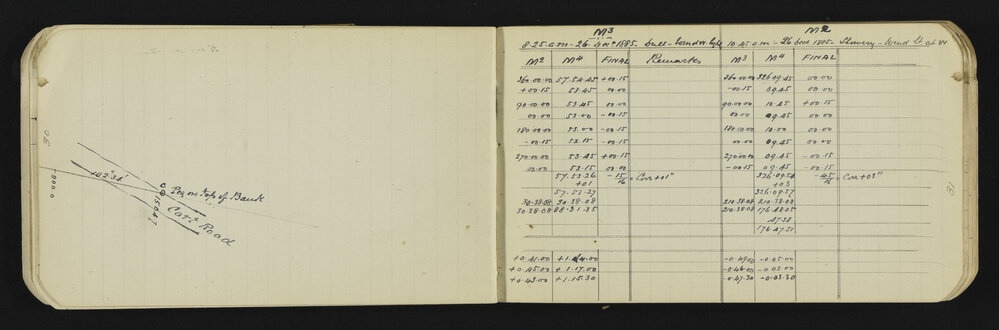 30
1900.0
102° 34'
Peg on top of Bank
Cart Road
M3 M2
8.25 a.m - 26 Decr 1885 - dull - Wind W light 10.45 a.m - 26 Decr 1885 - Showery - Wind
M2 M4 FINAL Remarks M3 M4 FINAL
360.00.00 57.54.45 +00.15 360.00.00 326.09.45 00.00
+00.15 53.45 00.00 -00.15 09.45 00.00
90.00.00 53.45 00.00 90.00.00 10.45 +00.15
00.00 53.00 -00.15 00.00 09.45 00.00
180.00.00 53.00 -00.15 180.00.00 10.00 00.00
-00.15 53.15 -00.15 00.00 09.45 00.00
270.00.00 53.45 +00.15 270.00.00 09.45 -00.15
00.00 53.15 00.00 -00.15 09.45 -00.15
57.53.26 -15/16 = Corr +01" 326.09.54 -45/16 = Corr +03"
+01 +03
57.53.27 326.09.57
30.38.08 30.38.08 210.38.08 210.38.08
30.38.08 88.31.35 210.38.08 176.48.05
47.38
176.47.51
+0.41.00 +1.14.00 -0.49.00 -0.05.00
+0.45.00 +1.17.00 -0.46.00 -0.02.00
+0.43.00 +1.15.30 -0.47.30 -0.03.30
31